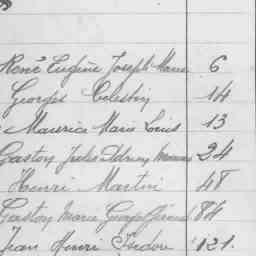 René Eugène Joseph Marie 6
Georges Célestin 14
Maurice Marie Louis 13
Gaston Jules 24
Henri Martin 48
Gaston Marie Georges 84
Jean Henri Isidore 121.